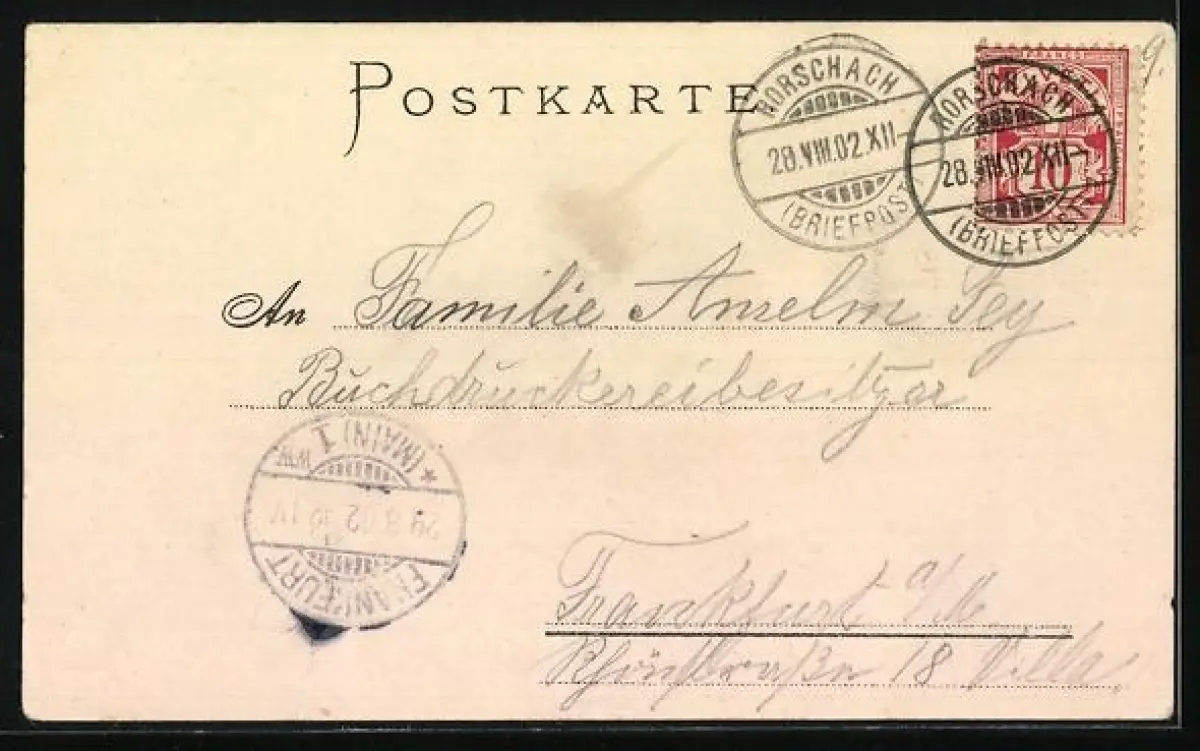 POSTKARTE
9.
RORSCHACH
28.VIII.02.XII-
(BRIEFPOST)
RORSCHACH
28.VIII.02.XII-
(BRIEFPOST)
FRANCO
10
An Familie Anselm Fey
Buchdruckereibesitzer
*(MAIN) 1
29.8.02
FRANKFURT
Frankfurt a/M.
18 Villa.